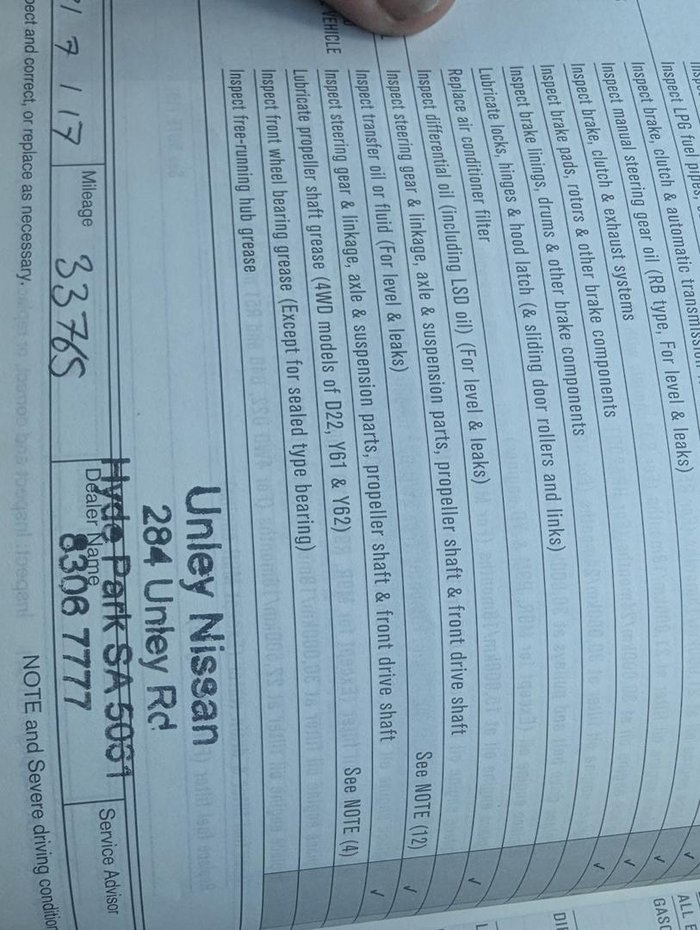 Inspect LPG fuel pipes,
Inspect brake, clutch & automatic
Inspect manual steering gear oil (RB type, For level & leaks)
Inspect brake, clutch & exhaust systems
Inspect brake pads, rotors & other brake components
Inspect brake linings, drums & other brake components
Lubricate locks, hinges & hood latch (& sliding door rollers and links)
Replace air conditioner filter
Inspect differential oil (including LSD oil) (For level & leaks)
Inspect steering gear & linkage, axle & suspension parts, propeller shaft & front drive shaft See NOTE (12)
Inspect transfer oil or fluid (For level & leaks)
VEHICLE Inspect steering gear & linkage, axle & suspension parts, propeller shaft & front drive shaft See NOTE (4)
Lubricate propeller shaft grease (4WD models of D22, Y61 & Y62)
Inspect front wheel bearing grease (Except for sealed type bearing)
Inspect free-running hub grease
Unley Nissan
284 Unley Rd
Hyde Park SA 5061
8306 7777
7 / 17
Mileage
33765
Dealer Name
Service Advisor
pect and correct, or replace as necessary.
NOTE and Severe driving condition
ALL E
GASO
DI